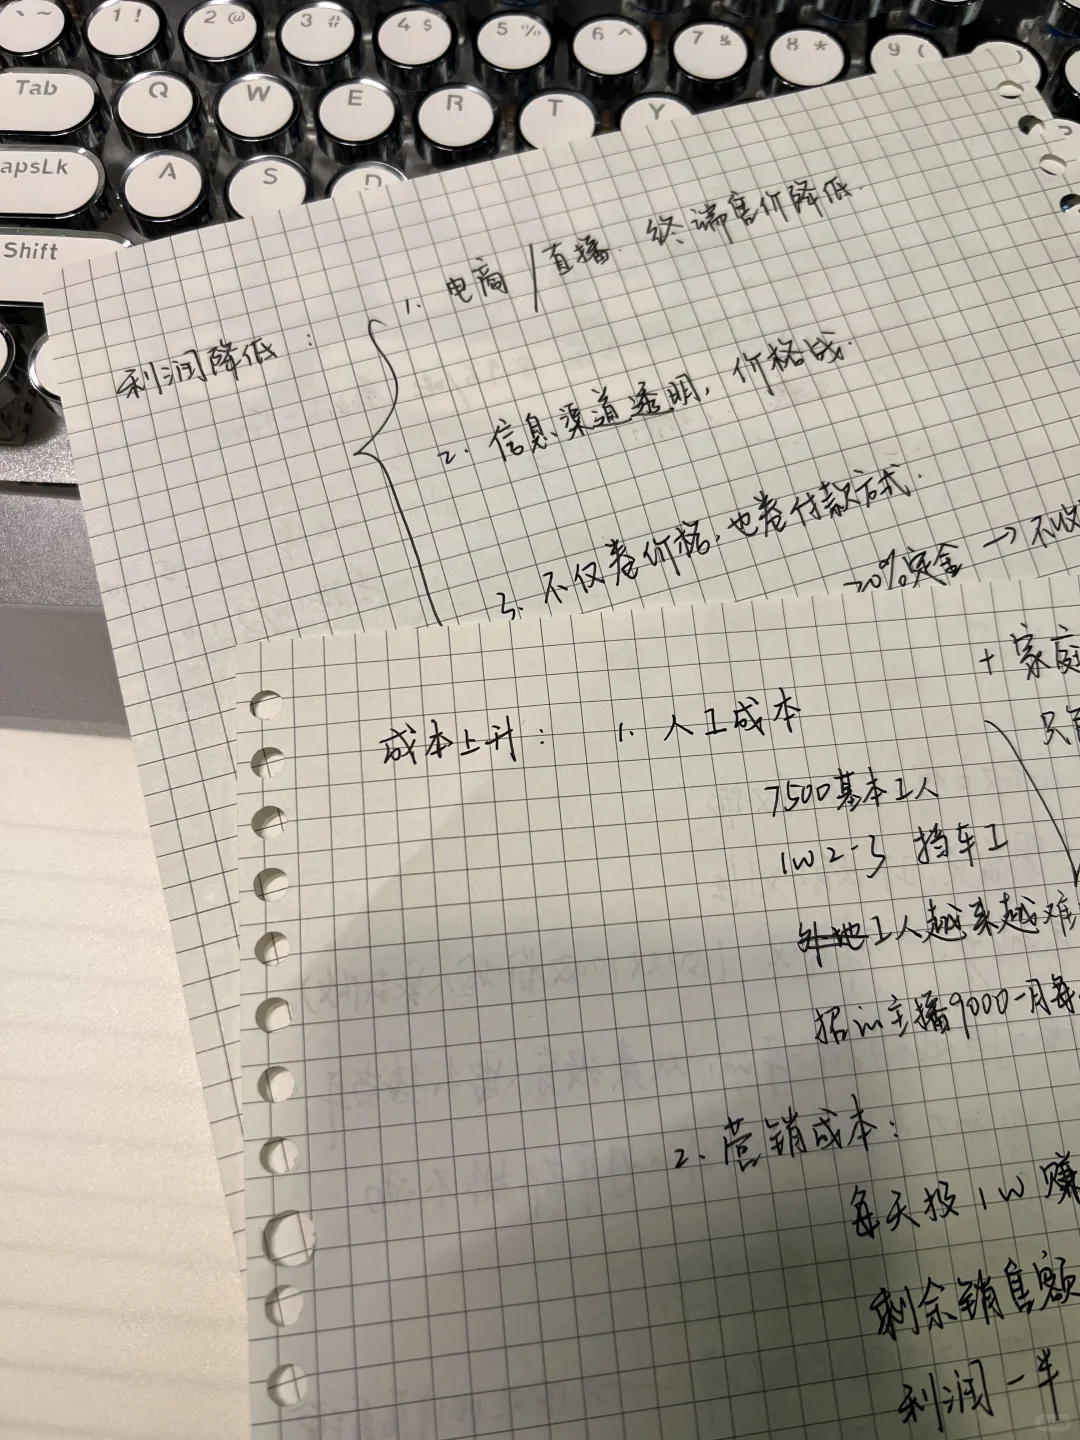 、~
1 !
2 @
3 #
4 $
5 %
6 ^
7 &
8 *
9 (
Tab
Q
W
E
R
T
Y
apsLk
A
S
D
Shift
利润降低：
1. 电商/直播. 终端售价降低.
2. 信息、渠道透明，价格战.
3. 不仅卷价格，也卷付款方式.
30%定金 → 不收
成本上升：
1. 人工成本
+ 家庭
只有
7500基本工人
1w2-3 挡车工
外地工人越来越难
主播9000一月每
2. 营销成本：
每天投1w 赚
剩余销售额
利润一半